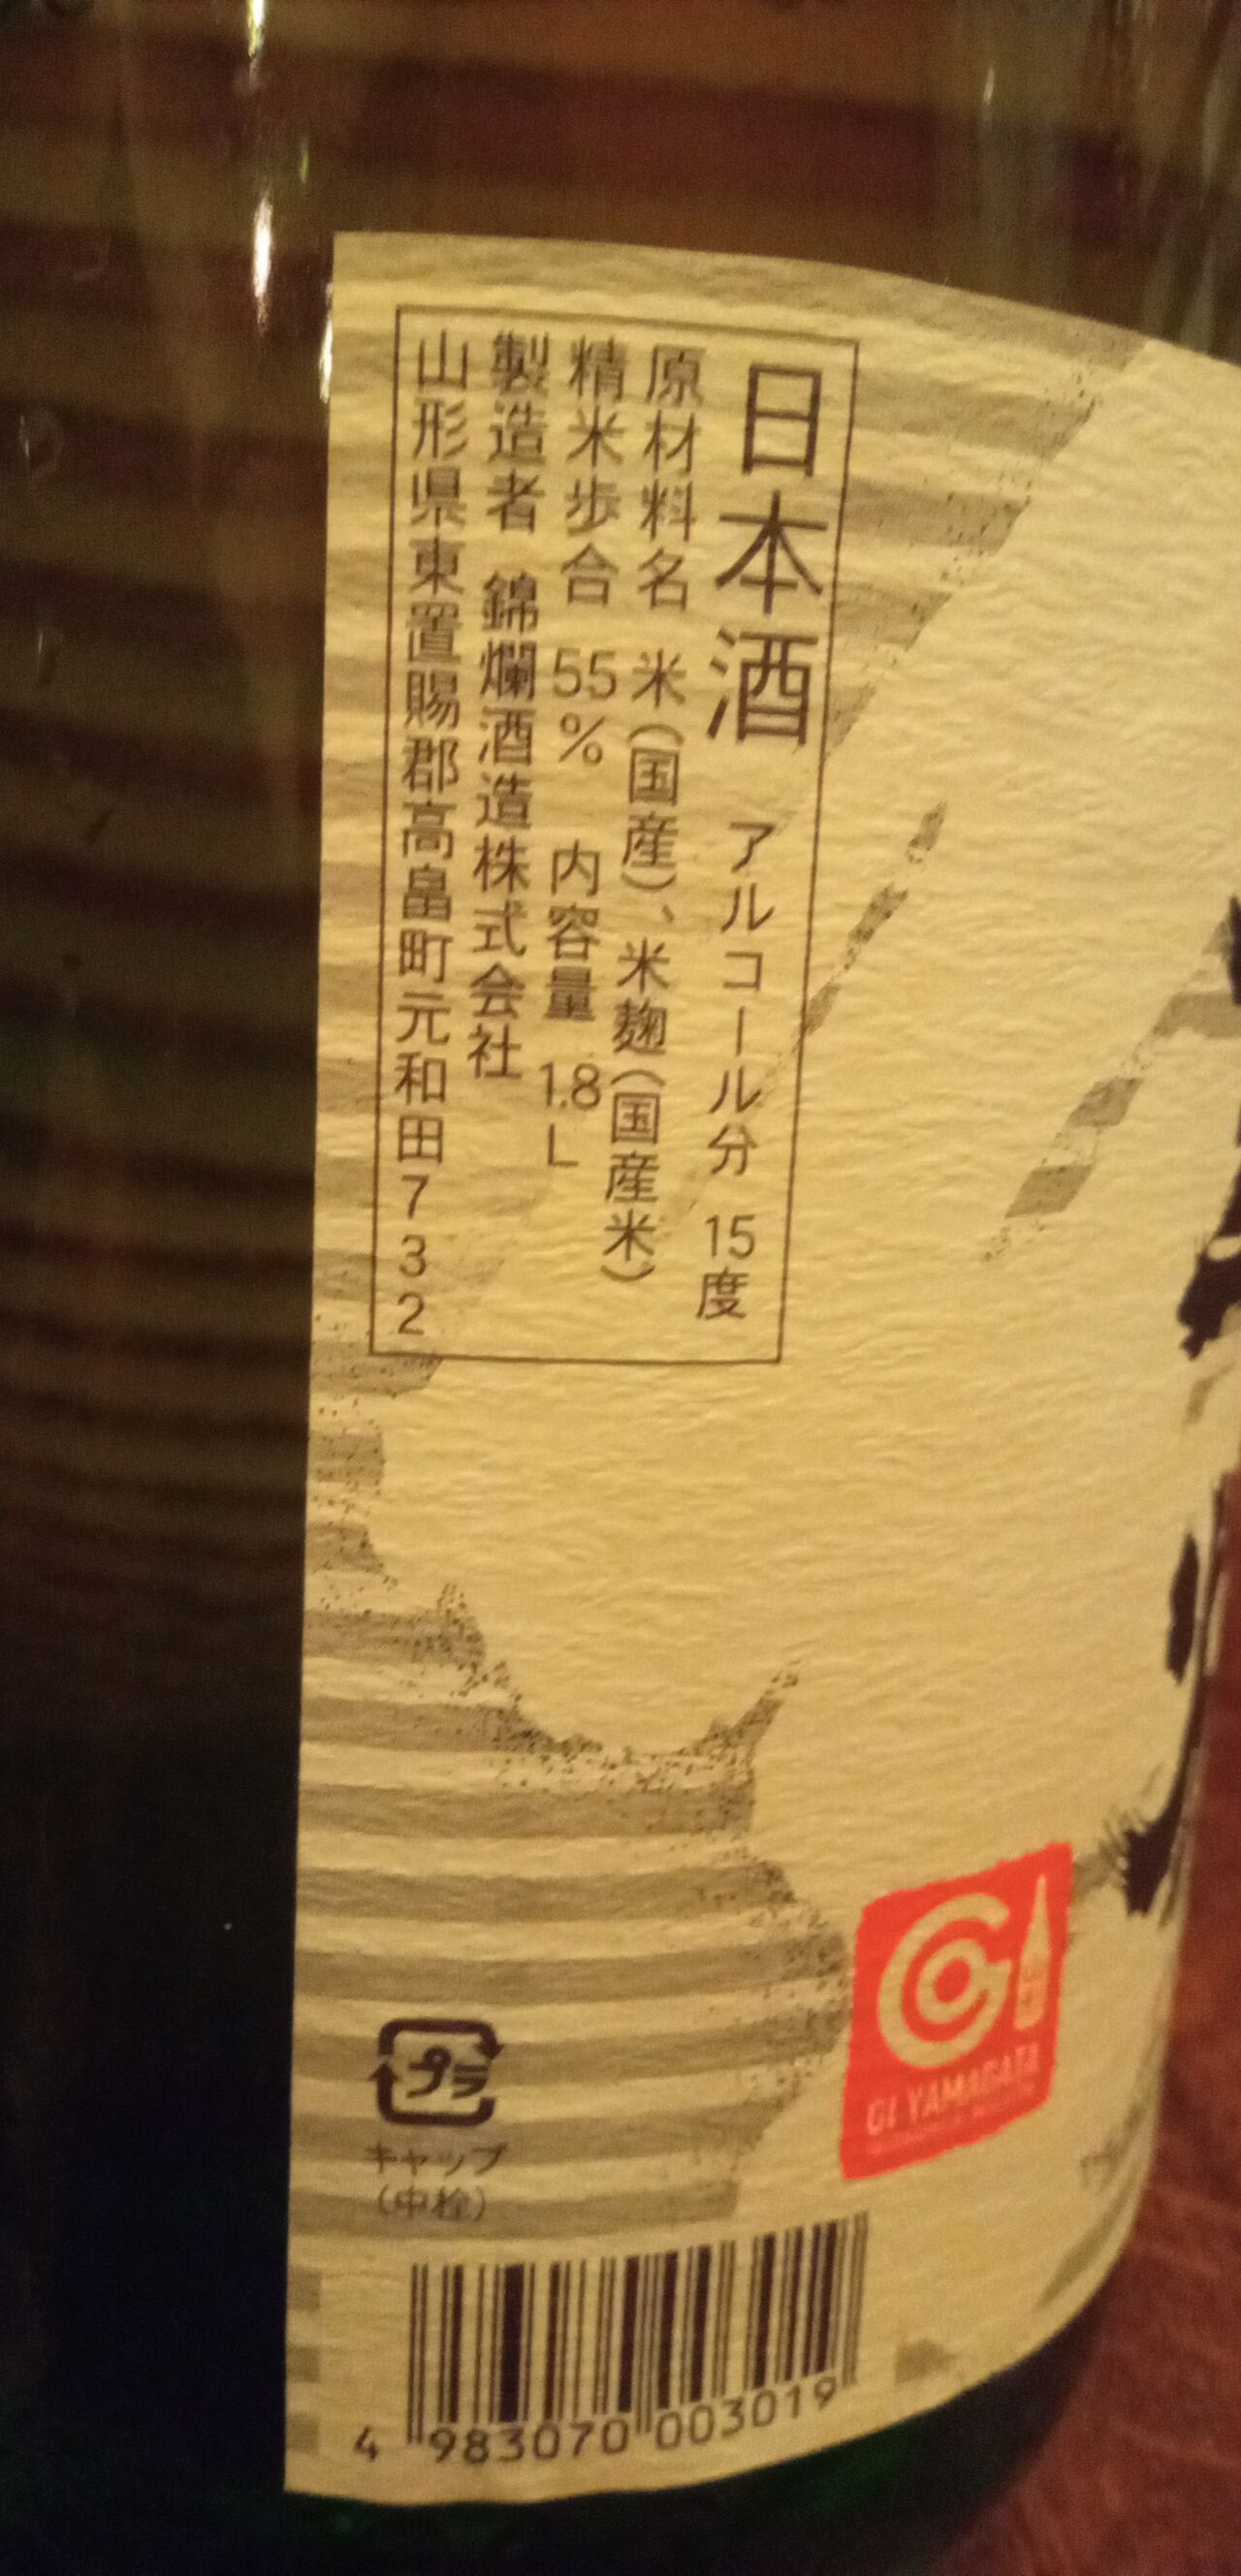 日本酒 アルコール分 15度
原材料名 米(国産)、米麹(国産米)
精米歩合 55% 内容量 1.8L
製造者 錦爛酒造株式会社
山形県東置賜郡高畠町元和田732
GI YAMAGATA
プラ
キャップ
(中栓)
4 983070 003019